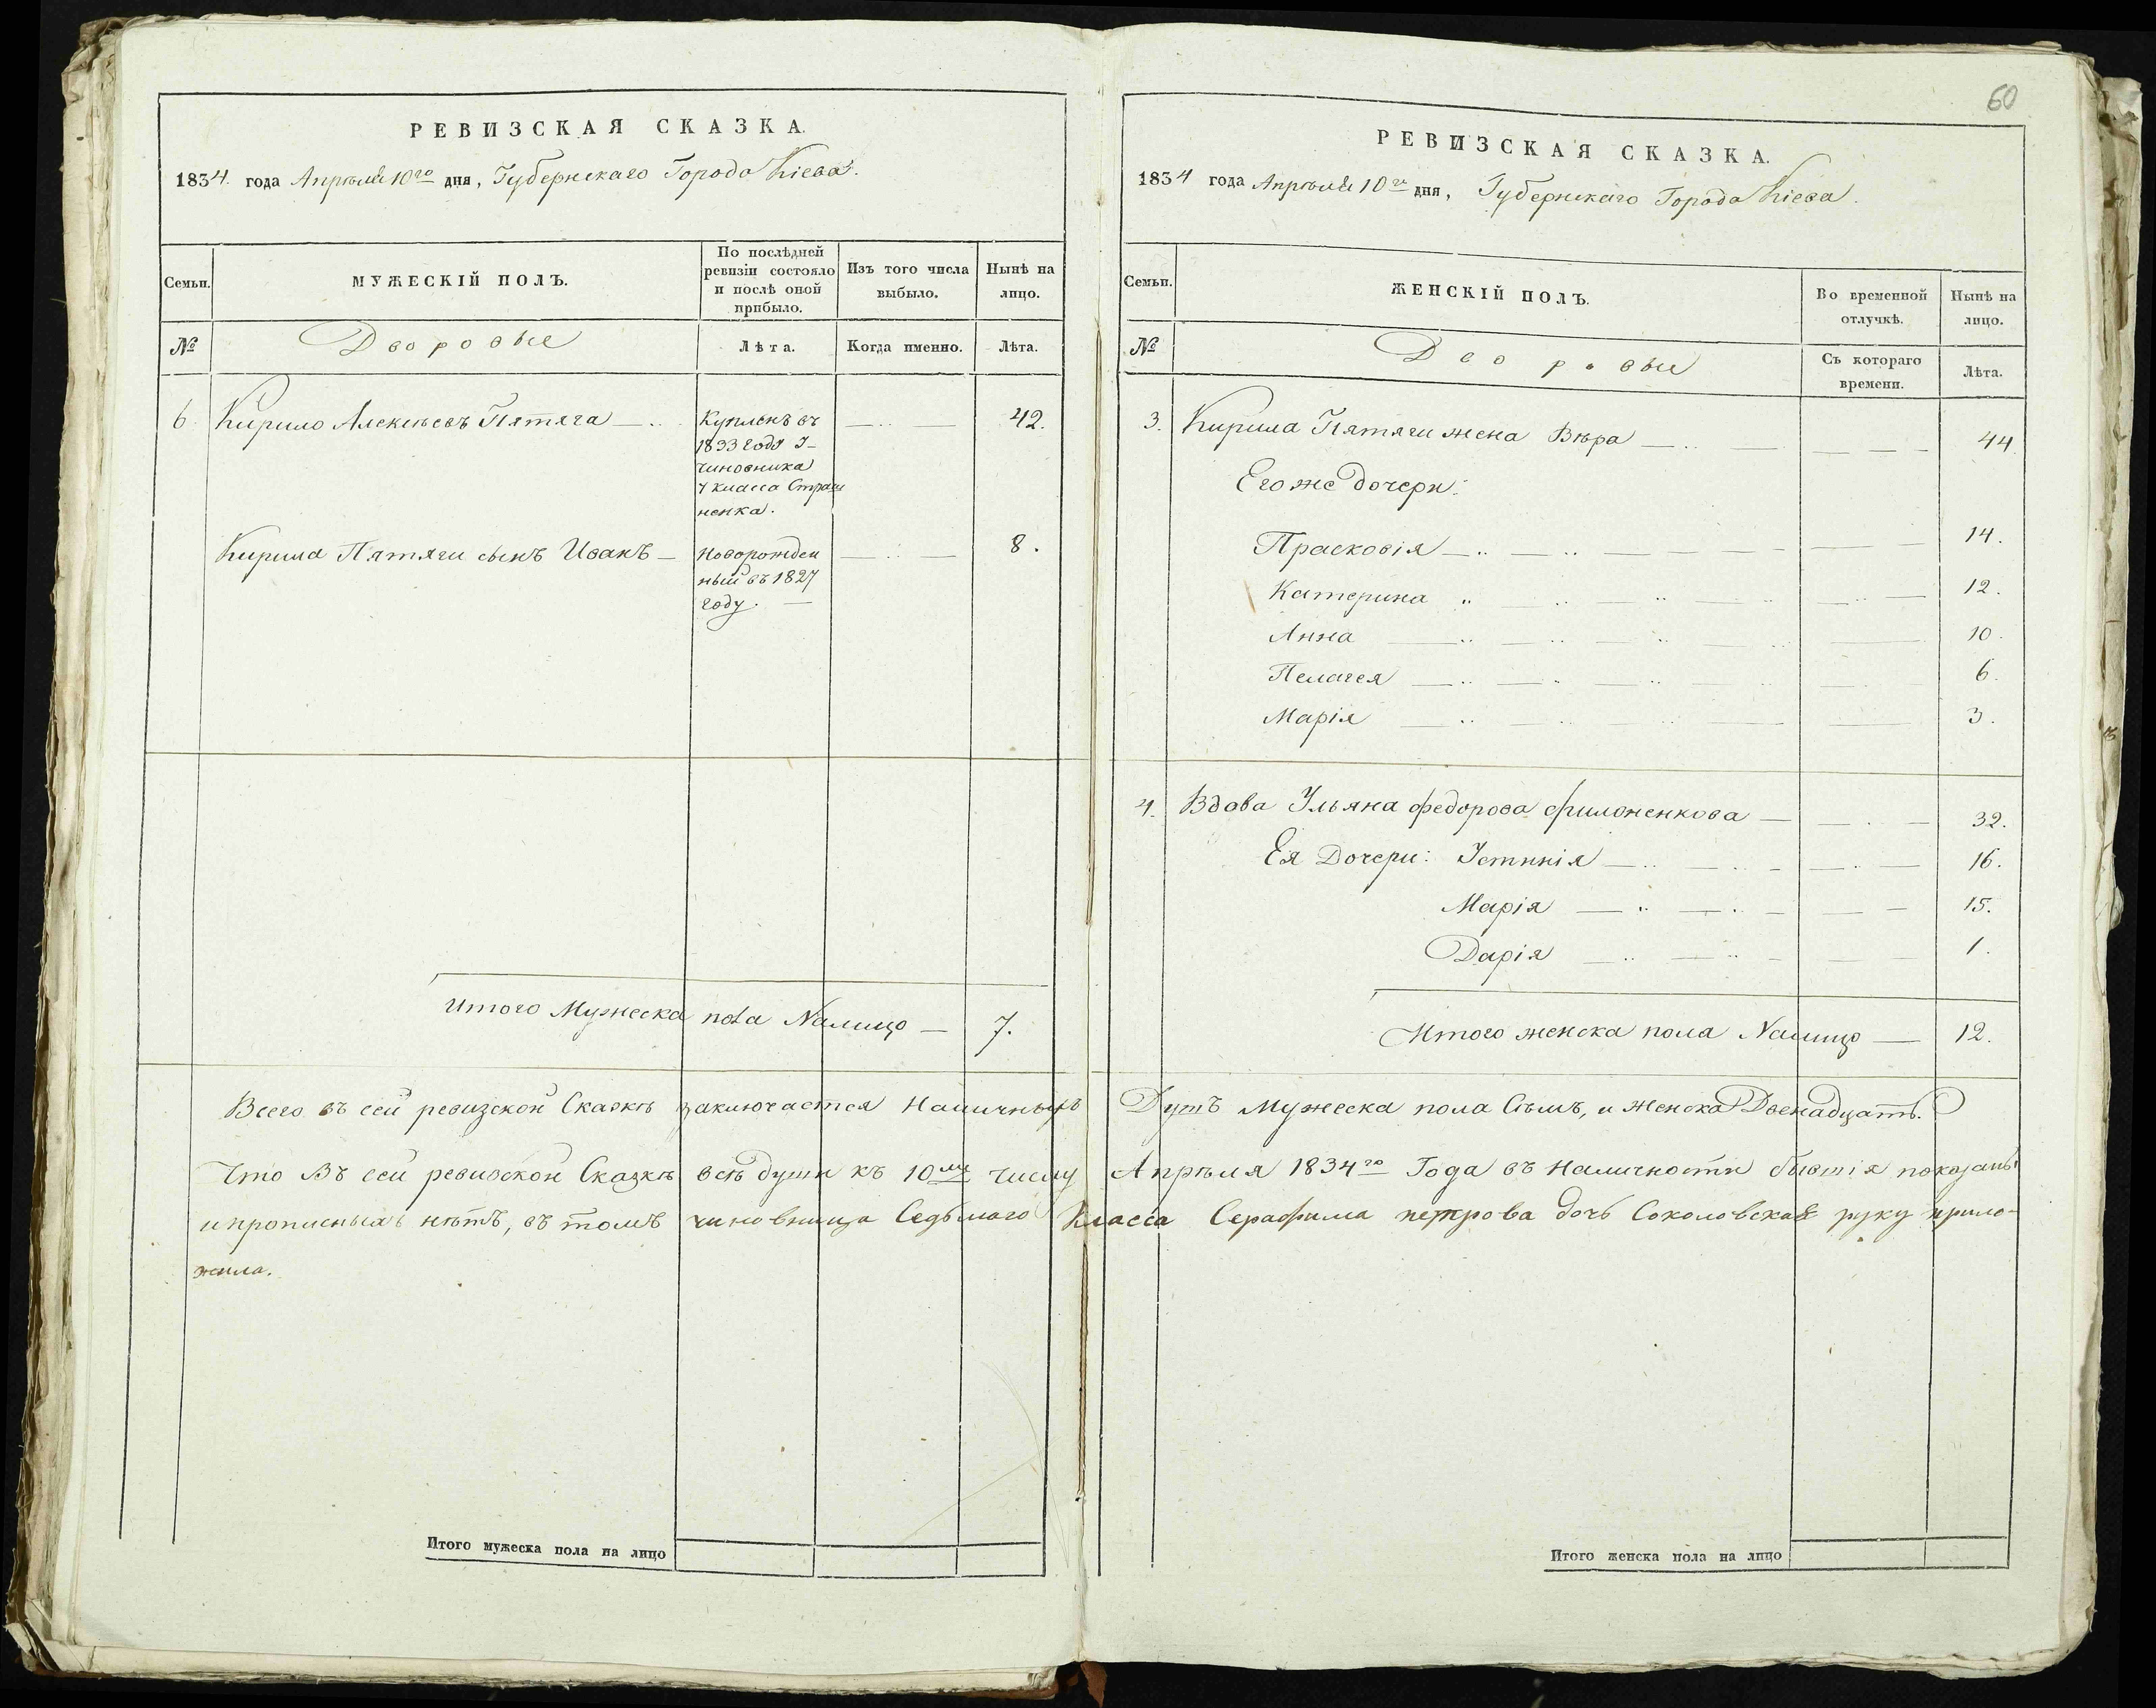 60
РЕВИЗСКАЯ СКАЗКА.
1834. года Апрѣля 10го дня, Губернскаго Города Кіева.
Семьи.
МУЖЕСКІЙ ПОЛЪ.
По послѣдней
ревизіи состояло
и послѣ оной
прибыло.
Изъ того числа
выбыло.
Нынѣ на
лицо.
№
Дворовые
Лѣта.
Когда именно.
Лѣта.
6 Кирило Алексѣевъ Пятяга — .. Купленъ въ — .. — 42.
1833 году У-
чиновника
7 класса Страш
ненка.
Кирила Пятяги сынъ Иванъ — Новорожден — .. — 8.
ный въ 1827
году. —
Итого Мужеска пола Налицо — 7.
РЕВИЗСКАЯ СКАЗКА.
1834 года Апрѣля 10го дня, Губернскаго Города Кіева.
Семьи.
ЖЕНСКІЙ ПОЛЪ.
Во временной
отлучкѣ.
Нынѣ на
лицо.
№
Дворовые
Съ котораго
времени.
Лѣта.
3. Кирила Пятяги жена Вѣра — 44
Его же дочери:
Прасковія — 14.
Катерина — 12.
Анна — 10.
Пелагея — 6.
Марія — 3.
4. Вдова Ульяна Федорова Филоненкова — 32.
Ея Дочери: Устинія — 16.
Марія — 15.
Дарія — 1.
Итого женска пола Налицо — 12.
Всего въ сей ревизской Сказкѣ заключается Наличныхъ Душъ Мужеска пола Сѣмъ, и Женска Двенадцать.
Что Въ сей ревизской Сказкѣ всѣ души къ 10му числу Апрѣля 1834го Года въ наличности бывшія показаны
и прописныхъ нѣтъ, въ томъ чиновница Седьмаго Класса Серафима петрова дочь Соколовская руку прило-
жила.
Итого мужеска пола на лицо
Итого женска пола на лицо